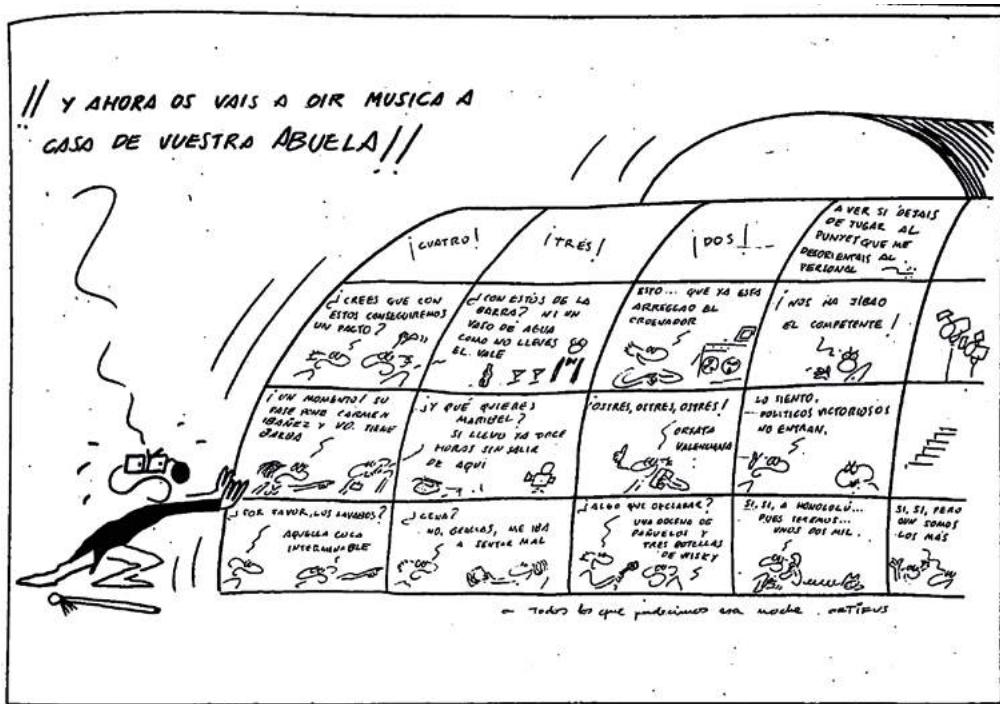 ¡¡ Y AHORA OS VAIS A OIR MUSICA A
CASA DE VUESTRA ABUELA!!
¡CUATRO!
¡TRES!
¡DOS!
A VER SI DEJAIS
DE JUGAR AL
PUNYET QUE ME
DESORIENTAIS AL
PERSONAL
¿CREES QUE CON
ESTOS CONSEGUIREMOS
UN PACTO?
¿CON ESTOS DE LA
BARRA? NI UN
VASO DE AGUA
COMO NO LLEVES
EL VALE
ESTO... QUE YA ESTA
ARREGLAO EL
ORDENADOR
¡NOS HA JIBAO
EL COMPETENTE!
¡UN MOMENTO! SU
PASE PONE CARMEN
IBAÑEZ Y VD. TIENE
BARBA
¿Y QUÉ QUIERES
MARIBEL?
SI LLEVO YA DOCE
HORAS SIN SALIR
DE AQUÍ
¡OSTRES, OSTRES, OSTRES!
ORXATA
VALENCIANA
LO SIENTO,
POLITICOS VICTORIOSOS
NO ENTRAN.
¿POR FAVOR, LOS LAVABOS?
AQUELLA COLA
INTERMINABLE
¿CENA?
NO, GRACIAS, ME IBA
A SENTAR MAL
¿ALGO QUE DECLARAR?
UNA DOCENA DE
PAÑUELOS Y
TRES BOTELLAS
DE WISKY
SI, SI, A HONOLOLÚ...
PUES SEREMOS...
UNOS DOS MIL.
SI, SI, PERO
AUN SOMOS
LOS MÁS
a todos los que padecimos esa noche. ORTIFUS